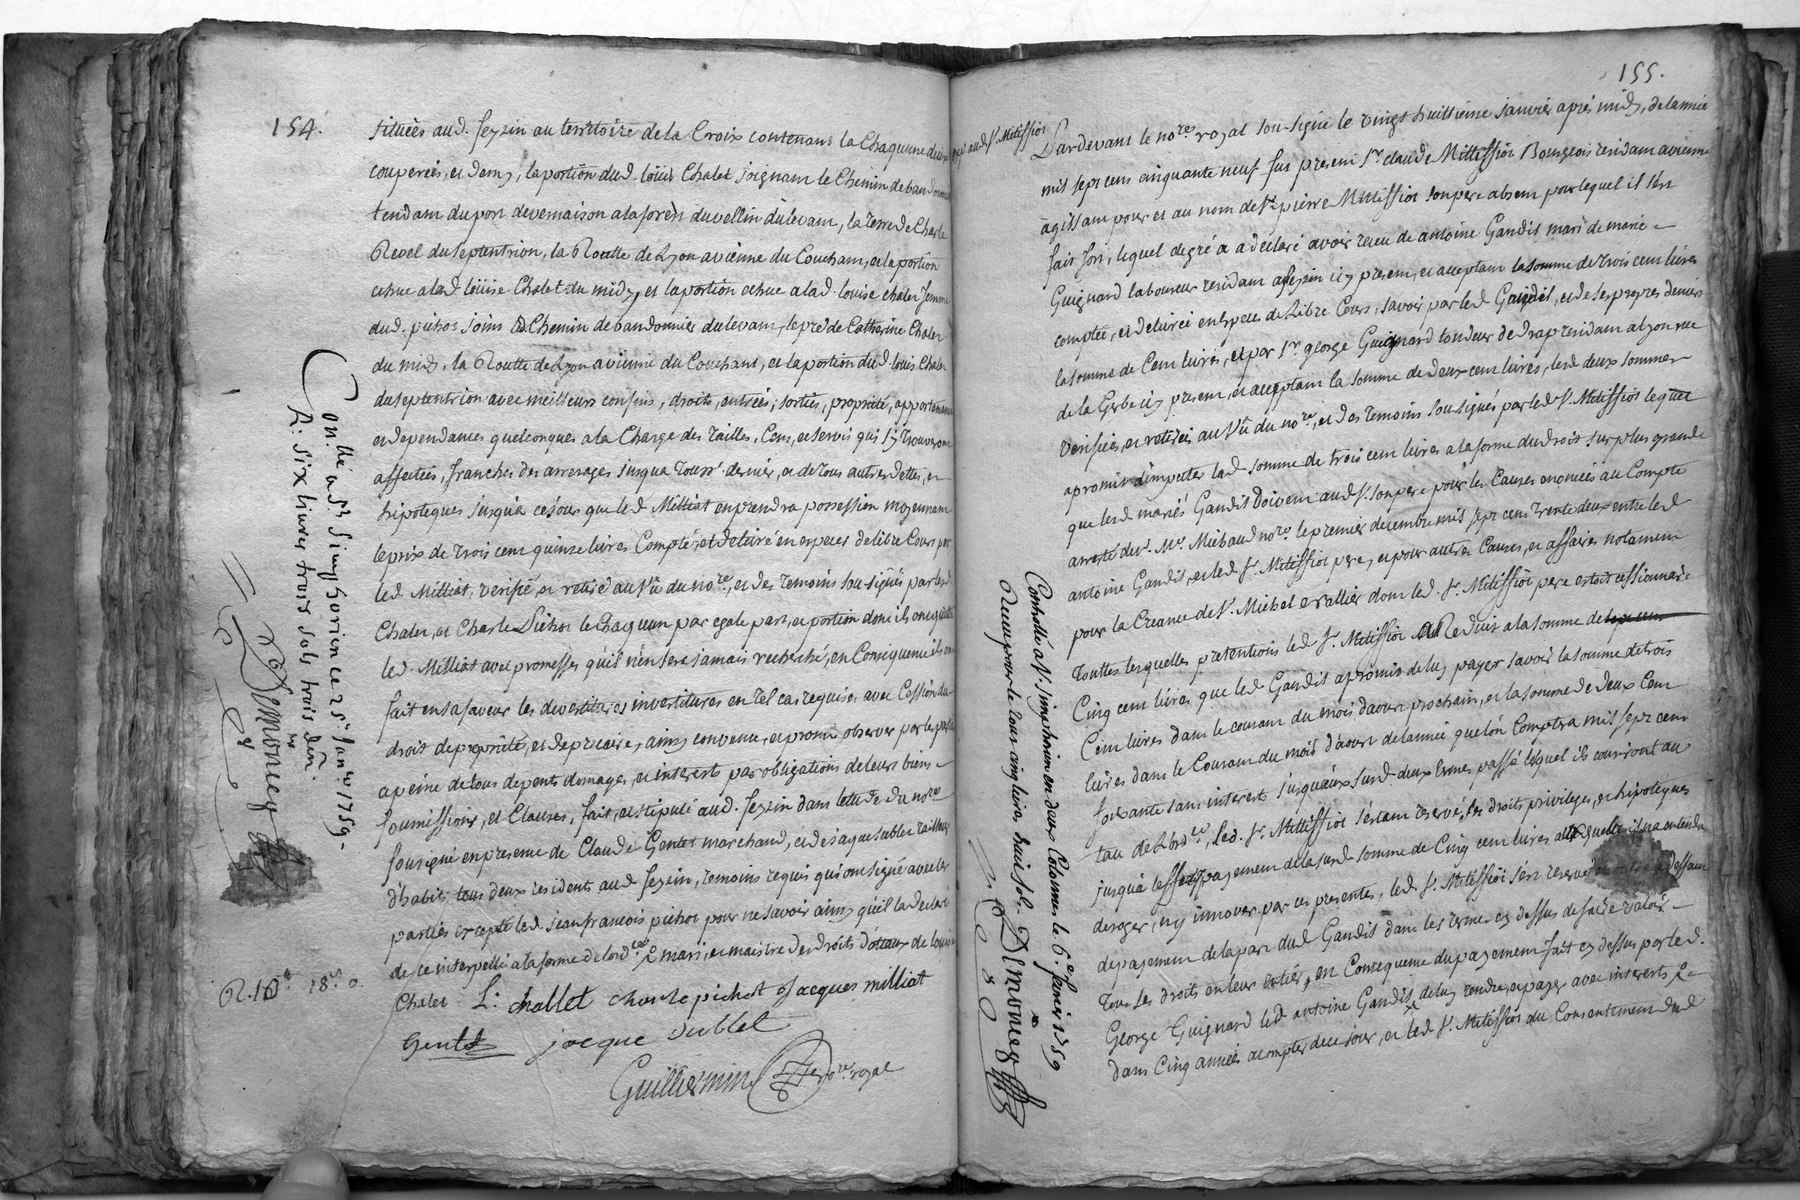 154.
situées aud. feyzin au territoire de la Croix contenant la Chaquune deux
couperées, et demy, la portion dud. loüis Chalet joignant le Chemin de bandonnier
tendant du port de vernaison a la forest du vellin du levant, la terre de Charle
Revel du septentrion, la Routte de Lyon a vienne du Couchant, et la portion
echue a lad. loüise Chalet du midy, et la portion echue a lad. louise chalet femme
dud. pichot joint le Chemin de bandonnier du levant, le pré de Catherine Chalet
du midy, la Routte de Lyon a vienne du Couchant, et la portion dud. louis Chalet
du septentrion avec meilleurs confins, droits, entrées, sorties, proprieté, appartenances
et dependances quelconques a la Charge des tailles, Cens, et servis qui s'y trouveront
affectées, franches des arrerages jusqua ce jour dernier, et de tous autres dettes, et
hipoteques jusqu'a ce jour que led. Milliat en prendra possession moyennant
le prix de trois cent quinze livres Compté, et delivré en especes de libre Cours par
led. Milliat, verifié, et retiré au vû du no.re, et des temoins sousignés par led.
Chalet, et Charle Pichot le Chaquun par egale part, et portion dont ils ont quitté
led. Milliat avec promesses qu'il n'en sera jamais recherché, en Consequence ils ont
fait en sa faveur les devestitures investitures en tel cas requises avec Cession du
droit de proprieté, et de precaire, ainsy convenu, et promis observer par les parties
a peine de tous depents domages, et interests par obligations de leurs biens
soumissions, et Clauses, fait, et stipulé aud. feyzin dans l'etude du no.re
sousigné en presence de Claude Gentet marchand, et de jaque sublet tailleur
d'habits, tous deux residents aud. feyzin, temoins requis qui ont signé avec les
parties excepté led. jean francois pichot pour ne savoir ainsy qu'il la declaré
de ce interpellé a la forme de l'ord.ce mari, et maistre des droits de louise
Chalet L: challet charle pichot Jacques milliat
Gentet jacque sublet
Guillermin no.re royal
Con.llé a S.t Simphorien ce 25.e Janv.r 1759.
R: six livres trois sols trois den.
Demoney
R. 10.lt 18.s 0
155.
Pardevant le no.re royal sousigné le vingt huittieme janvier aprés midy, de l'année
mil sept cent cinquante neuf fut present s.r claude Mitiffiot Bourgeois residant a vienne
agissant pour et au nom de s.r pierre Mitiffiot son pere absent pour lequel il s'est
fait fort, lequel de gré a declaré avoir receu de antoine Gandit mari de marie
Guignard laboureur residant a feyzin icy present, et acceptant la somme de trois cent livres
comptée, et delivrée en especes de libre Cours, savoir par led. Gandit, et de ses propres deniers
la somme de Cent livres, et par s.r george Guignard tondeur de drap residant a lyon rue
de la Gerbe icy present, et acceptant la somme de deux cent livres, lesd. deux sommes
verifiées, et retirées au vû du no.re, et des temoins sousignés par led. s.r Mitiffiot lequel
a promis d'imputer lad. somme de trois cent livres a la forme du droit sur plus grande
que lesd. mariés Gandit doivent aud. s.r son pere pour les Causes enoncées au Compte
arresté dev.t M.e Michaud no.re le premier decembre mil sept cent trente deux entre led.
antoine Gandit, et led. s.r Mitiffiot pere, et pour autres Causes, et affaires notament
pour la Creance de s.r Michel evallier dont led. s.r Mitiffiot pere estoit cessionnaire
touttes lesquelles pretentions led. s.r Mitiffiot a Reduit a la somme de
Cinq cent livres que led. Gandit a promis de luy payer savoir la somme de trois
Cent livres dans le courant du mois d'aoust prochain, et la somme de deux Cent
livres dans le Courant du mois d'aoust de l'année que l'on Comptera mil sept cent
soixante sans interests jusqu'aux susd. deux termes passé lequel ils couriront au
taux de l'ord.ce, led. s.r Mitiffiot s'estant reservé les droits privileges, et hipoteques
jusqu'a l'effectif payement de la susd. somme de Cinq cent livres auxquels il n'a entendu
deroger, ny innover par ces presentes, led. s.r Mitiffiot s'est reservé
de payement de la part dud. Gandit dans les termes cy dessus de faire valoir
tous les droits en leur entier, en Consequence du payement fait cy dessus par led.
George Guignard led. antoine Gandit de luy rendre, et payer avec interests
dans Cinq années a compter de ce jour, et led. s.r Mitiffiot du Consentement dud.
aud. s.r Mitiffiot
Controllé a S.t simphorien en deux Colonnes le 6.e fevrier 1759
Receu pour le tout cinq livres huit sols. Demoney